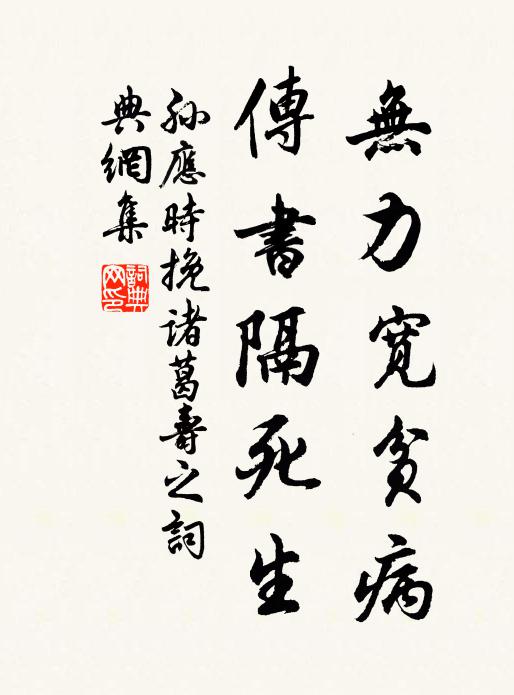 無力寬貧病
傳書隔死生
孙應時挽諸葛壽之詞
典網集
詞典网印